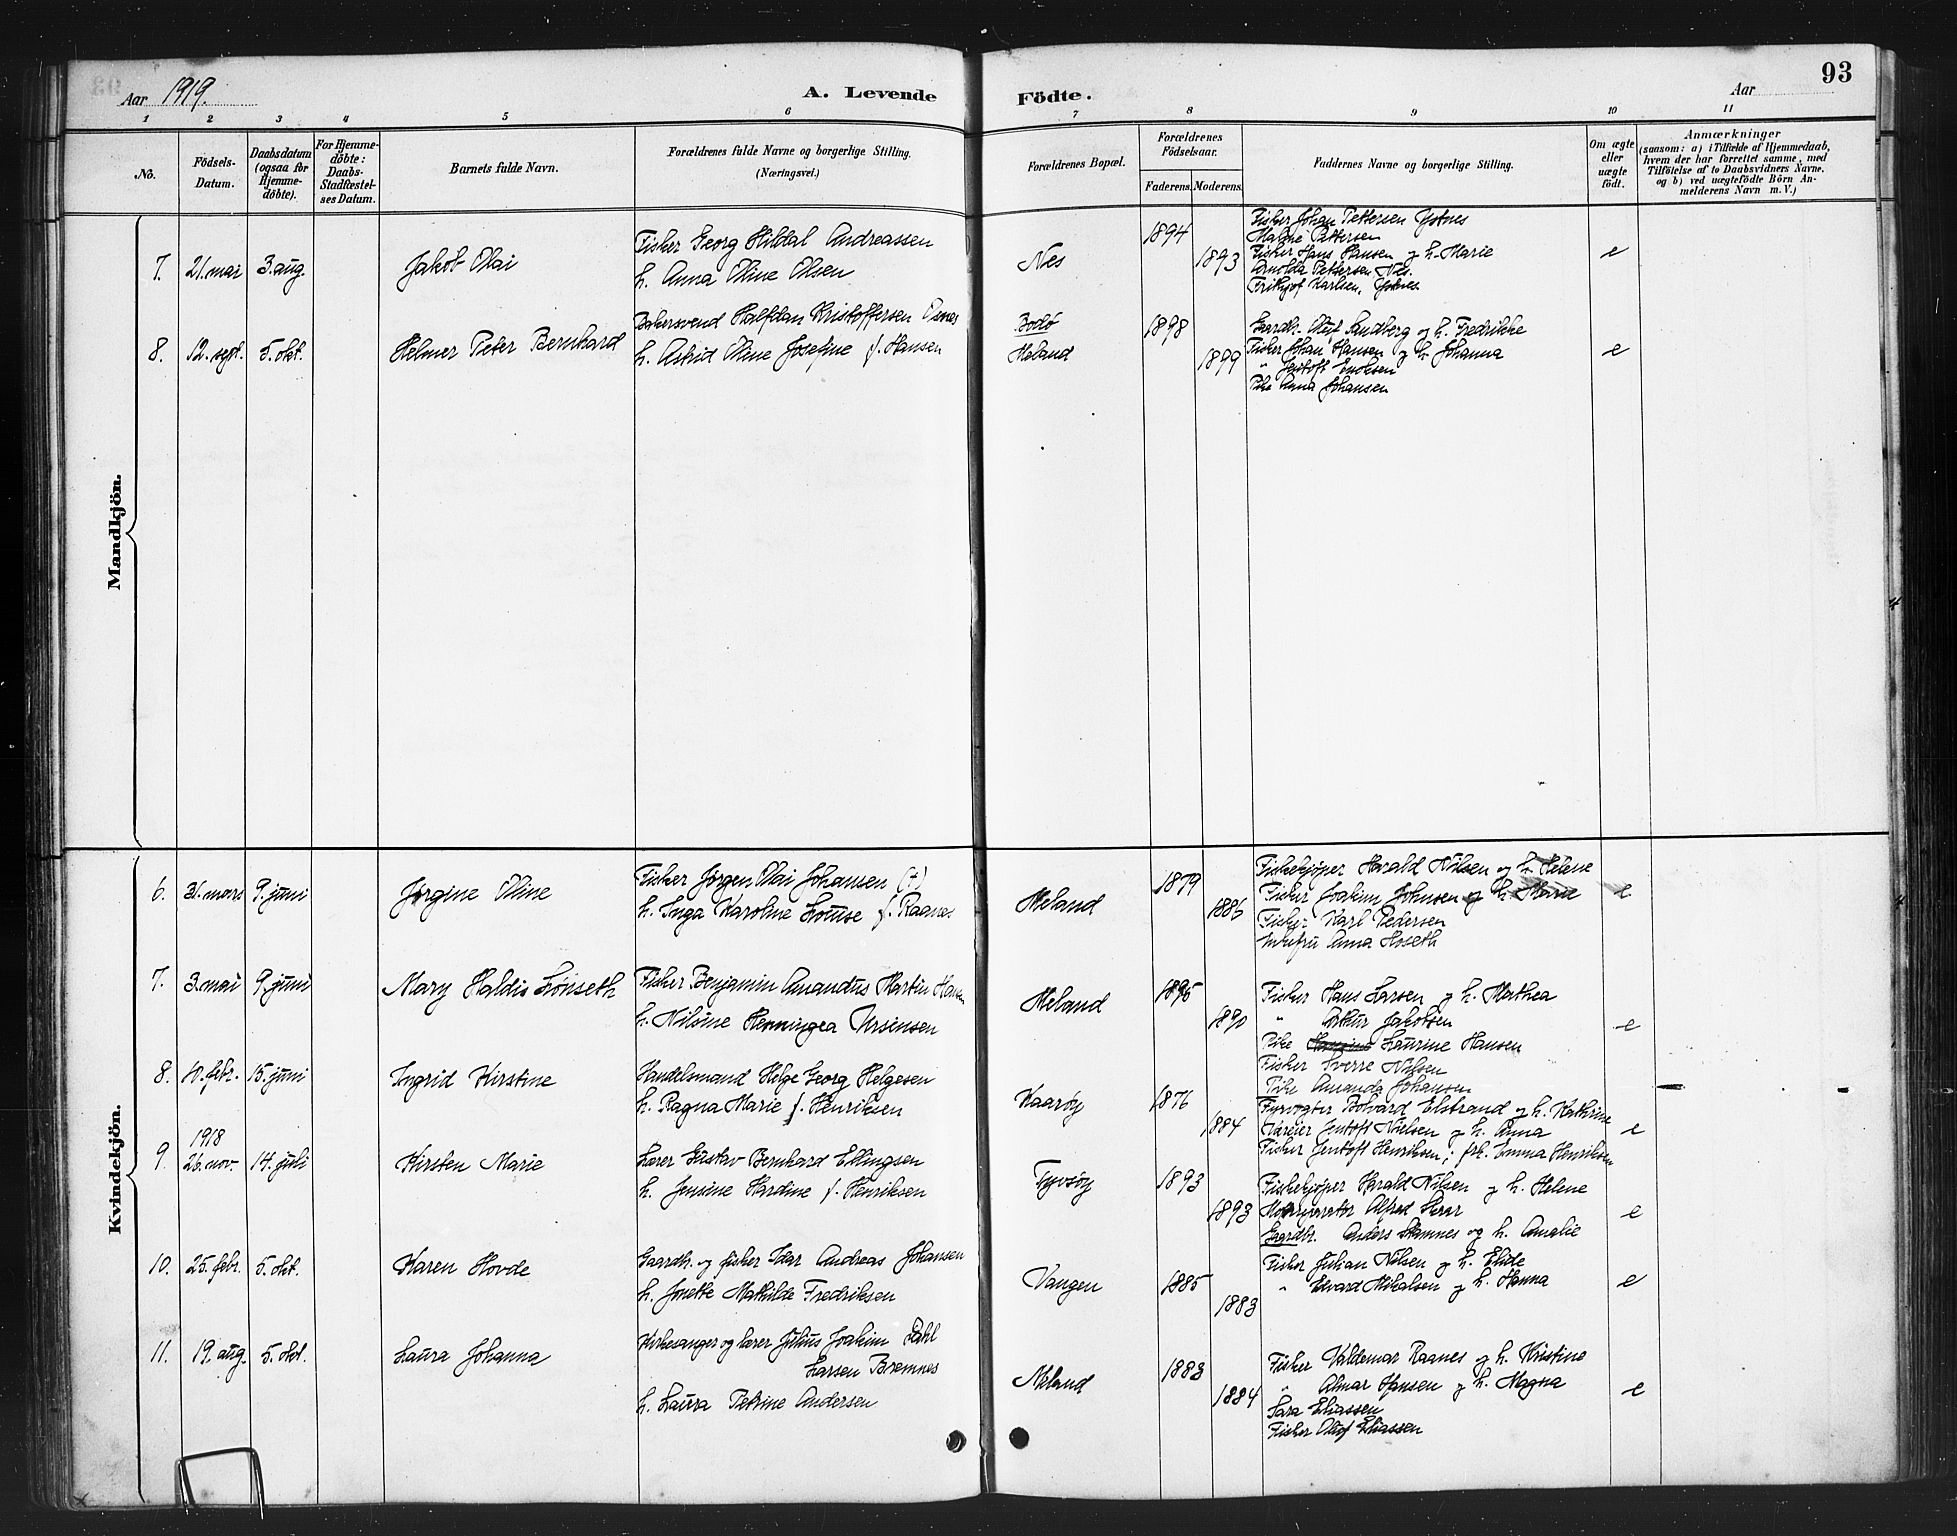 93
Aar 1919.
A. Levende Födte.
Aar
1 2 3 4 5 6 7 8 9 10 11
No.
Födsels-Datum.
Daabsdatum (ogsaa for Hjemme-döbte).
For Hjemme-döbte: Daabs-Stadfæstel-ses Datum.
Barnets fulde Navn.
Forældrenes fulde Navne og borgerlige Stilling.
(Næringsvei.)
Forældrenes Bopæl.
Forældrenes Födselsaar.
Faderens. Moderens.
Faddernes Navne og borgerlige Stilling.
Om ægte eller uægte födt.
Anmærkninger
(saasom: a) i Tilfælde af Hjemmedaab,
hvem der har forrettet samme, med
Tilföielse af to Daabsvidners Navne,
og b) ved uægtefödte Börn An-
melderens Navn m. V.)
Mandkjön.
7. 21. mai 3. aug. Jakob Olai
Fisker Georg Hildal Andreassen
h. Anna Oline Olsen
Nes 1894 1893
Fisker Johan Pettersen
Pettersen
Fisker Hans Hansen og h. Marie
Pettersen Nes.
Karlsen,
e
8. 12. sept. 5. okt. Helmer Peter Bernhard
Bakersvend Halfdan Kristoffersen
h. Astrid Oline Josefine f. Hansen
Bodø
Meland
1898 1899
Gaardbr. Sandberg og h. Fredrikke
Fisker Johan Hansen og h. Johanna
" Jentoft
Pike Anna Johansen
e
Kvindekjön.
6. 31. mars 9. juni Jørgine Oline
Fisker Jørgen Olai Johansen (†)
h. Inga Karoline Louise f. Raanes
Meland 1879 1886
Fiskekjøper Harald Nilsen og h. Helene
Fisker Joakim Johnsen og h. Marie
Karl Pedersen
Anna Hoseth
e
7. 3. mai 9. juni Mary Haldis Lønseth
Fisker Benjamin Amandus Martin Hansen
h. Nilsine Henningea Ursinsen
Meland 1895 1890
Fisker Hans Larsen og h. Mathea
" Arthur Jakobsen
Pike Laurine Hansen
Fisker Sverre Nilsen
Pike Amanda Johansen
e
8. 10. febr. 15. juni Ingrid Kirstine
Handelsmand Helge Georg Helgesen
h. Ragna Marie f. Henriksen
Kaarøy 1876 1884
Fyrvogter Bolvard Elstrand og h. Kathrine
Væreier Jentoft Nielsen og h. Anna
Fisker Jentoft Henriksen; frk. Emma Henriksen
e
9. 1918 26. nov. 14. juli Kirsten Marie
Lærer Gustav Bernhard Ellingsen
h. Jensine Hardine f. Henriksen
Tyvsøy 1893 1893
Fiskekjøper Harald Nilsen og h. Helene
Alfred
Gaardbr. Anders Stamnes og h. Amalie
e
10. 25. febr. 5. okt. Karen Hovde
Gaardbr. og fisker Idar Andreas Johansen
h. Josette Mathilde Fredriksen
Vangen 1885 1883
Fisker Julian Nilsen og h. Elide
" Edvard Mikalsen og h. Hanna
e
11. 19. aug. 5. okt. Laura Johanna
Kirkesanger og lærer Julius Joakim Dahl
Larsen Bremnes
h. Laura Petrine Andersen
Meland 1883 1884
Fisker Valdemar Raanes og h. Kristine
" Almar Hansen og h. Magna
Sara Eliassen
Fisker Olaf Eliassen
e